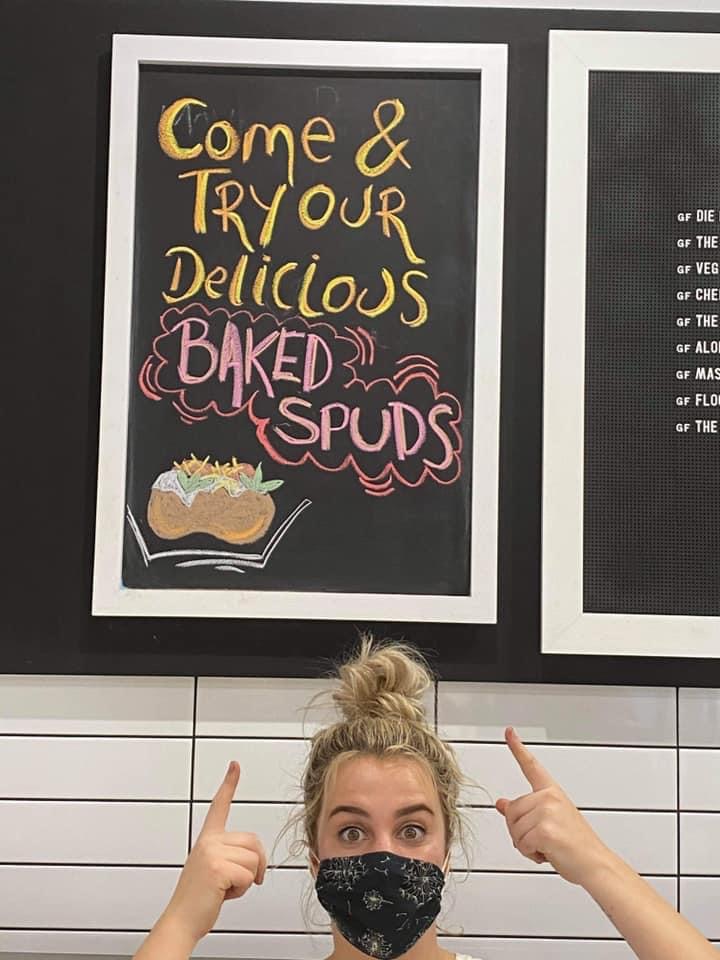 Come &
TRY OUR
Delicious
BAKED
SPUDS
GF DIE
GF THE
GF VEG
GF CHE
GF THE
GF ALO
GF MAS
GF FLO
GF THE